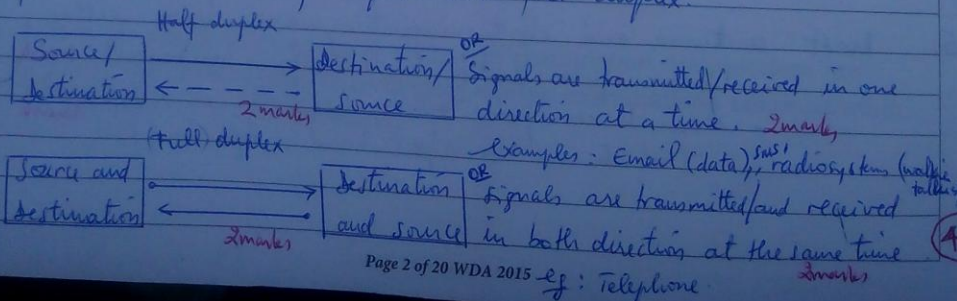 Half duplex
Source/
destination
destination/
source
2 marks
OR
Signals are transmitted/received in one
direction at a time. 2 marks
examples: Email (data), SMS, radiosystem (walkie
talkies
(Full) duplex
Source and
destination
destination
and source
2 marks
OR
Signals are transmitted/and received
in both direction at the same time
2 marks
4
Page 2 of 20 WDA 2015
eg: Telephone